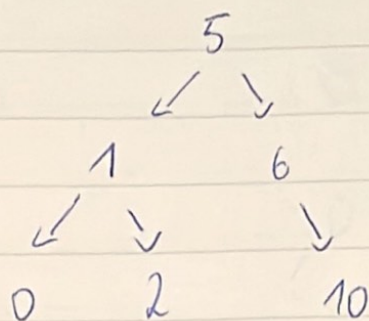 5
1 6
0 2 10